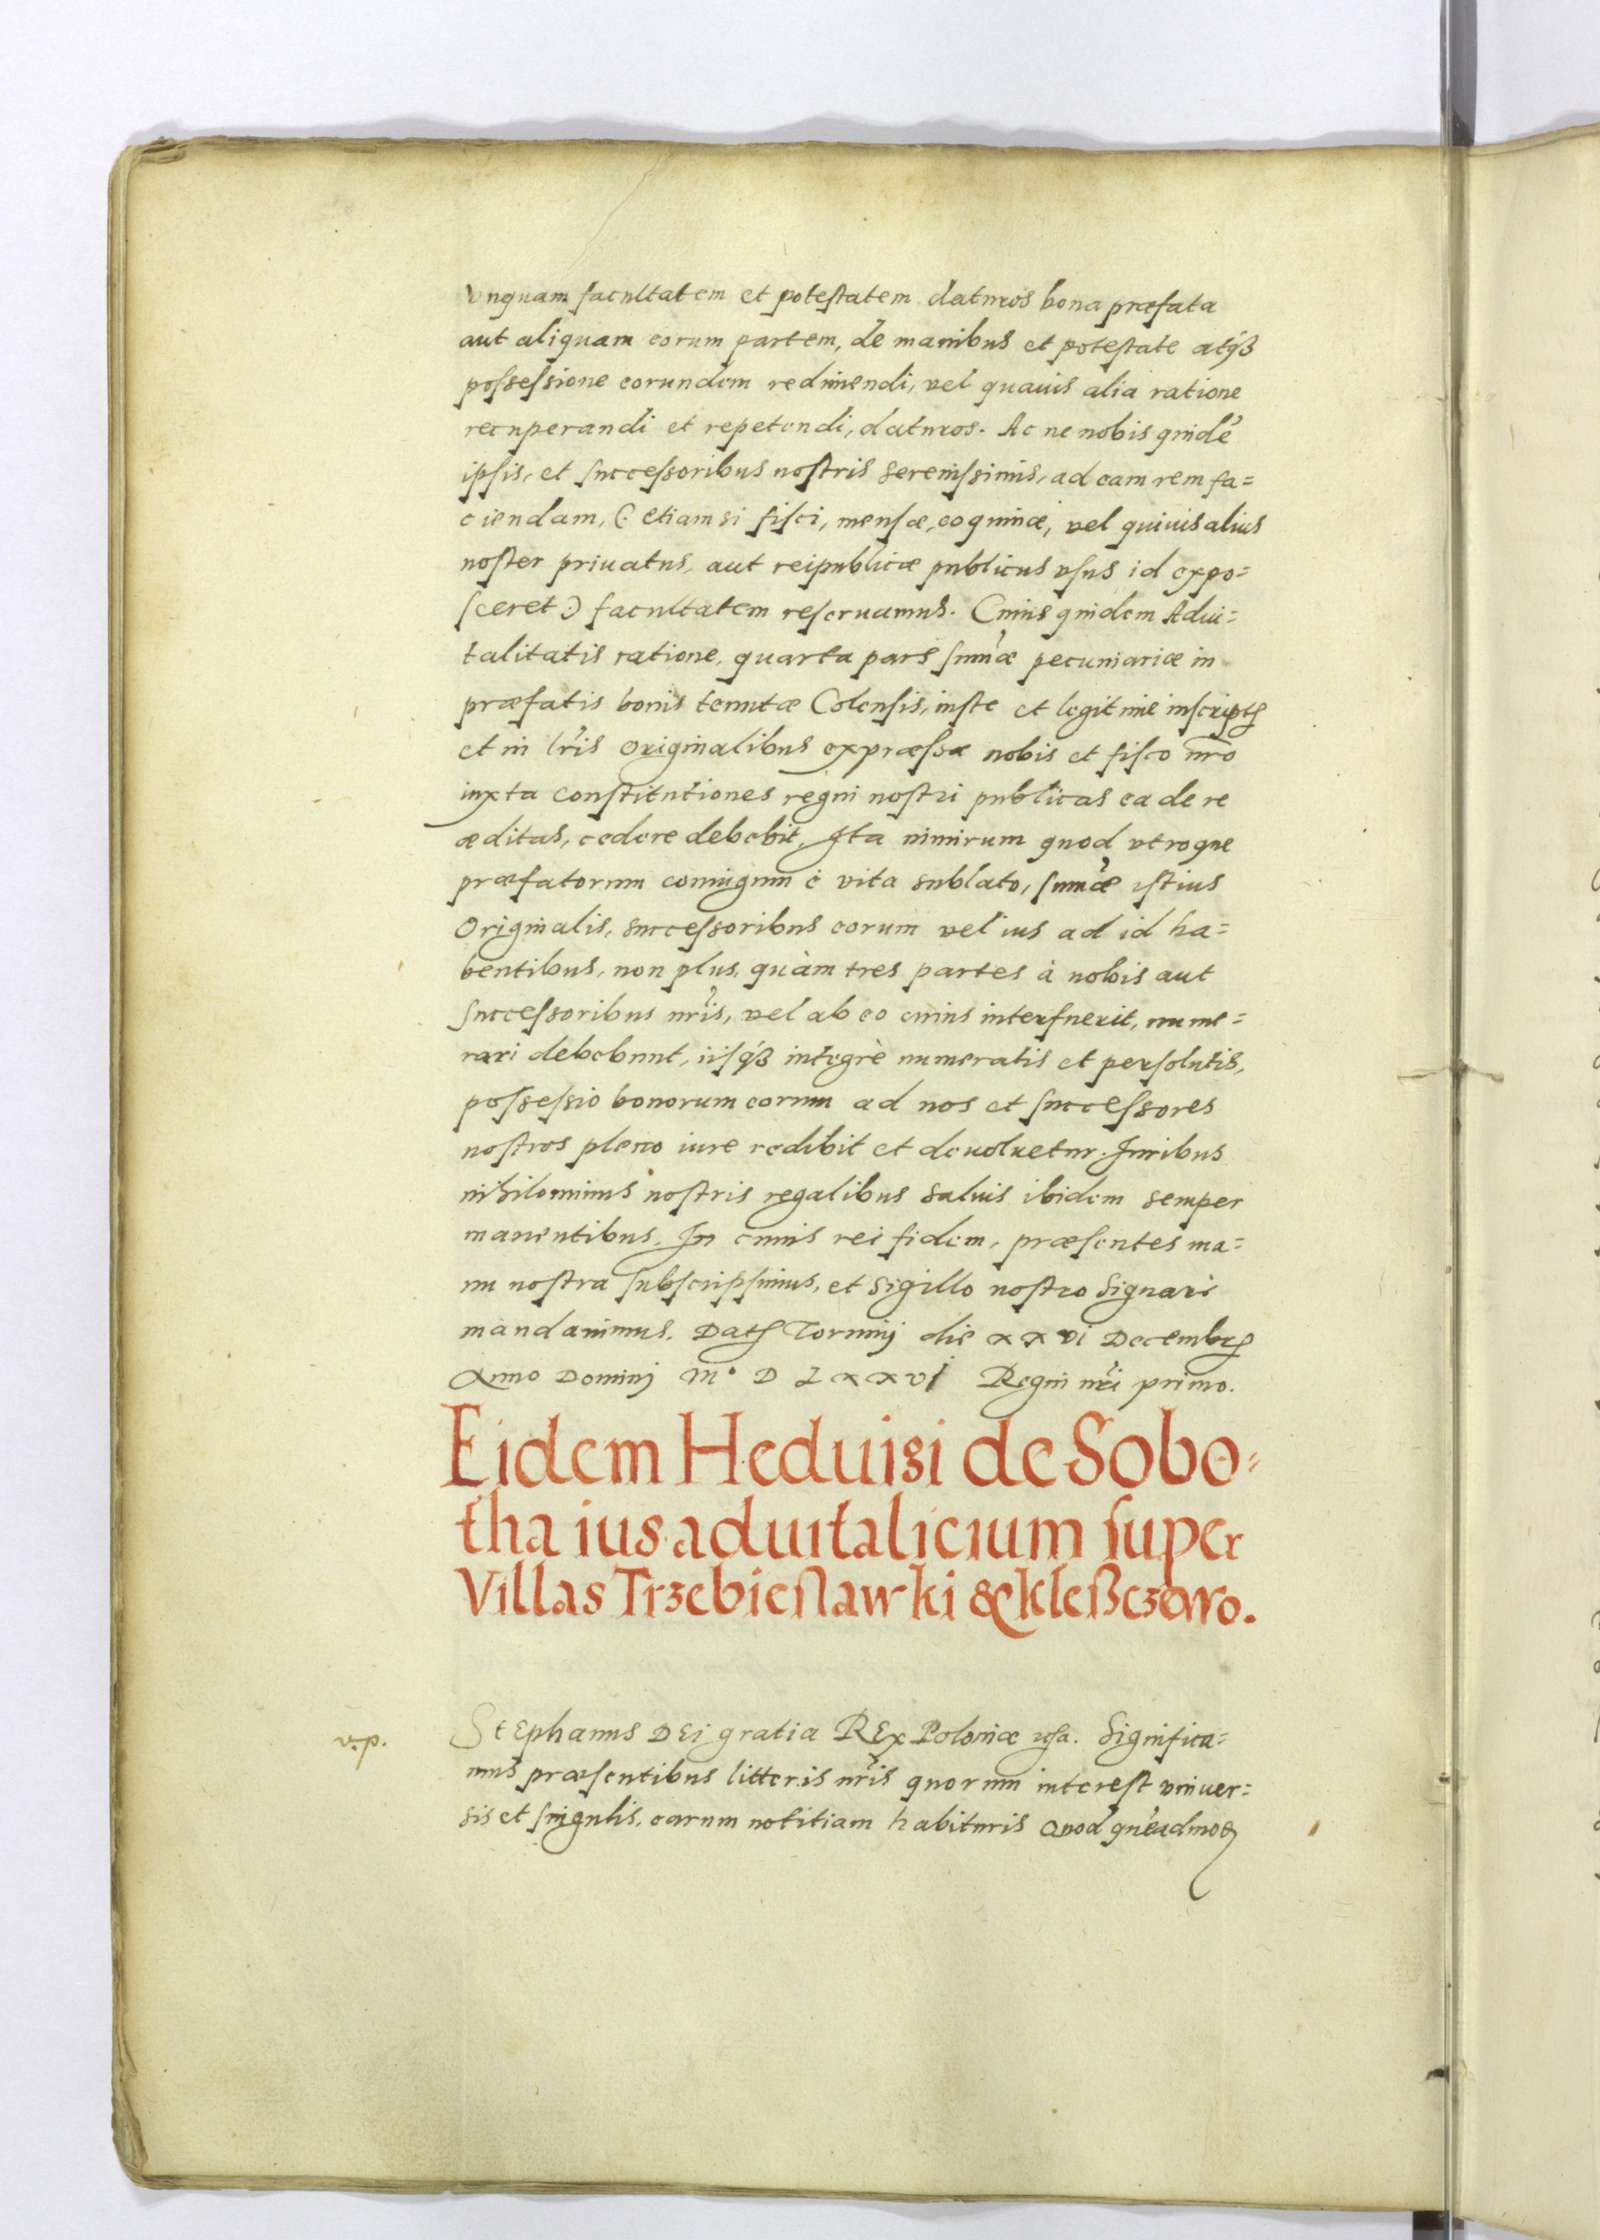 vnquam facultatem et potestatem daturos bona præfata
aut aliquam eorum partem, de manibus et potestate atq̃ꝫ
possessione eorundem redimendi, vel quauis alia ratione
recuperandi et repetendi, daturos. Ac ne nobis quidẽ
ipsis, et successoribus nostris serenissimis, ad eam rem fa=
ciendam, (: etiam si fisci, mensæ, coquinæ, vel quiuis alius
noster priuatus, aut reipublicæ publicus vsus id expo=
sceret :) facultatem reseruamus. Cuius quidem Adui=
talitatis ratione, quarta pars sum̃æ pecuniariæ in
præfatis bonis tenutæ Colensis, iuste et legitime inscriptę
et in lr̃is originalibus expræssæ nobis et fisco nr̃o
iuxta constitutiones regni nostri publicas ea de re
æditas, cedere debebit, Ita nimirum quod vtroque
præfatorum coniugum è vita sublato, sum̃æ istius
Originalis, successoribus eorum vel ius ad id ha=
bentibus, non plus, quàm tres partes à nobis aut
successoribus nr̃is, vel ab eo cuius interfuerit, nume=
rari debebunt, iisq̃ꝫ integrè numeratis et persolutis,
possessio bonorum eorum ad nos et successores
nostros pleno iure redibit et deuoluetur. Iuribus
nihilominus nostris regalibus saluis ibidem semper
manentibus. In cuius rei fidem, præsentes ma=
nu nostra subscripsimus, et sigillo nostro signari
mandauimus. Datꝭ Torunij die xxvi Decembrꝭ
Anno Dominj M° D LXXVI Regni nr̃i primo.
Eidem Heduisi de Sobo=
tha ius aduitalicium super
Villas Trzebieslawki & kleßczewo.
v.p.
Stephanus DEi gratia REx Poloniæ etca. Significa=
mus præsentibus litteris nr̃is quorum interest vniuer=
sis et singulis, earum notitiam habituris Quod quẽadmoꝫ